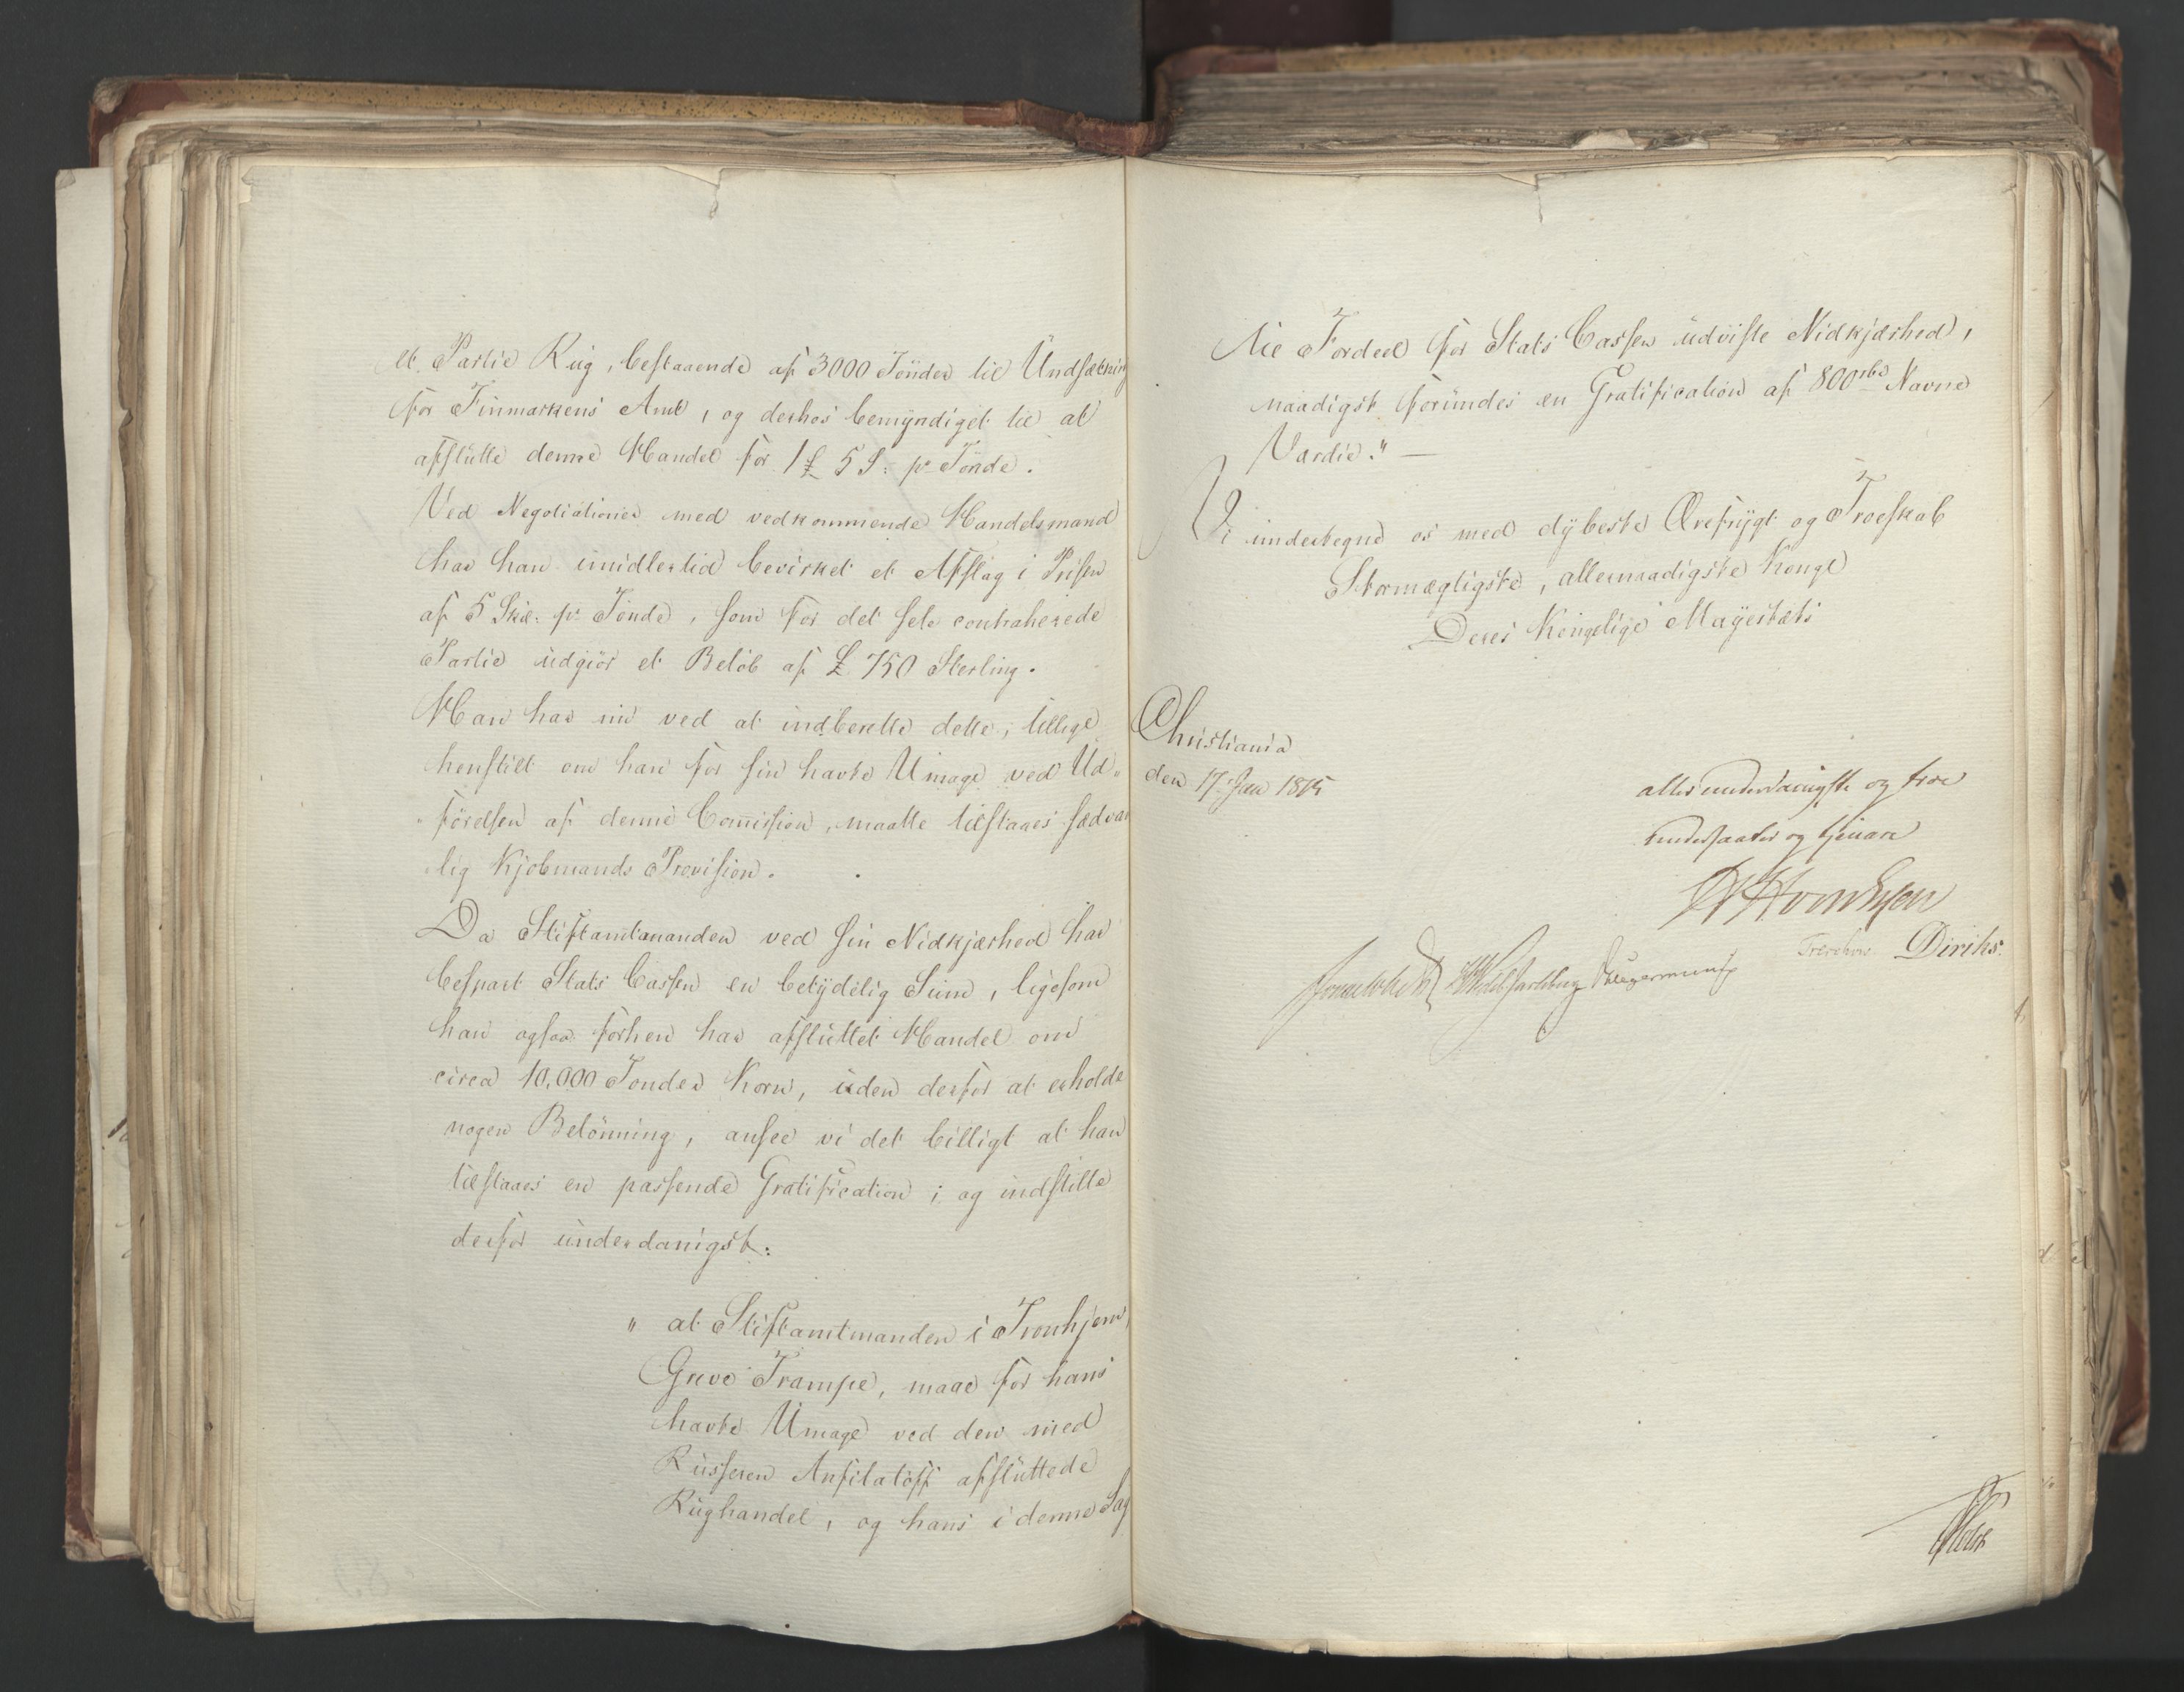 et Partie Rug, bestaaende af 3000 Tönder til Undsætning
for Finmarkens Amt, og derhos bemyndiget til at
afslutte denne Handel for 1 £ 5 S: pr Tönde.
Ved Negotiationer med vedkommende Handelsmand
har han imidlertid bevirket et Afslag i Prisen
af 5 Skil: pr Tönde, som for det hele contraherede
Partie udgiör et Belöb af £ 750 Sterling.
Han har nu ved at indberette dette, tillige
henstilt om han for sin havte Umage ved Ud-
"förelsen af denne Commission, maatte tilstaaes sædvan
lig Kjöbmands Provision.
Da Stiftamtmanden ved sin Nidkjærhed har
bespart Stats Cassen en betydelig Sum, ligesom
han ogsaa forhen har afsluttet Handel om
circa 10,000 Tönder Korn, uden derfor at erholde
nogen Belönning, ansee vi det billigt at han
tilstaaes en passende Gratification; og indstille
derfor underdanigst:
" at Stiftamtmanden i Tronhjem,
Greve Trampe, maae for hans
havte Umage ved den med
Russeren Anfilatoff afsluttede
Rughandel, og hans i denne Sag
til Fordeel for Stats Cassen udviste Nidkjærhed,
naadigst forundes en Gratification af 800 rbd Navne
Værdie." —
Vi undertegne os med dybeste Ærefrygt og Troeskab
Stormægtigste, allernaadigste Konge
Deres Kongelige Mayestæts
Christiania
den 17 Jan 1815
allerunderdanigste og troe
undersaatter og tjenare
Treschow Diriks
Holst